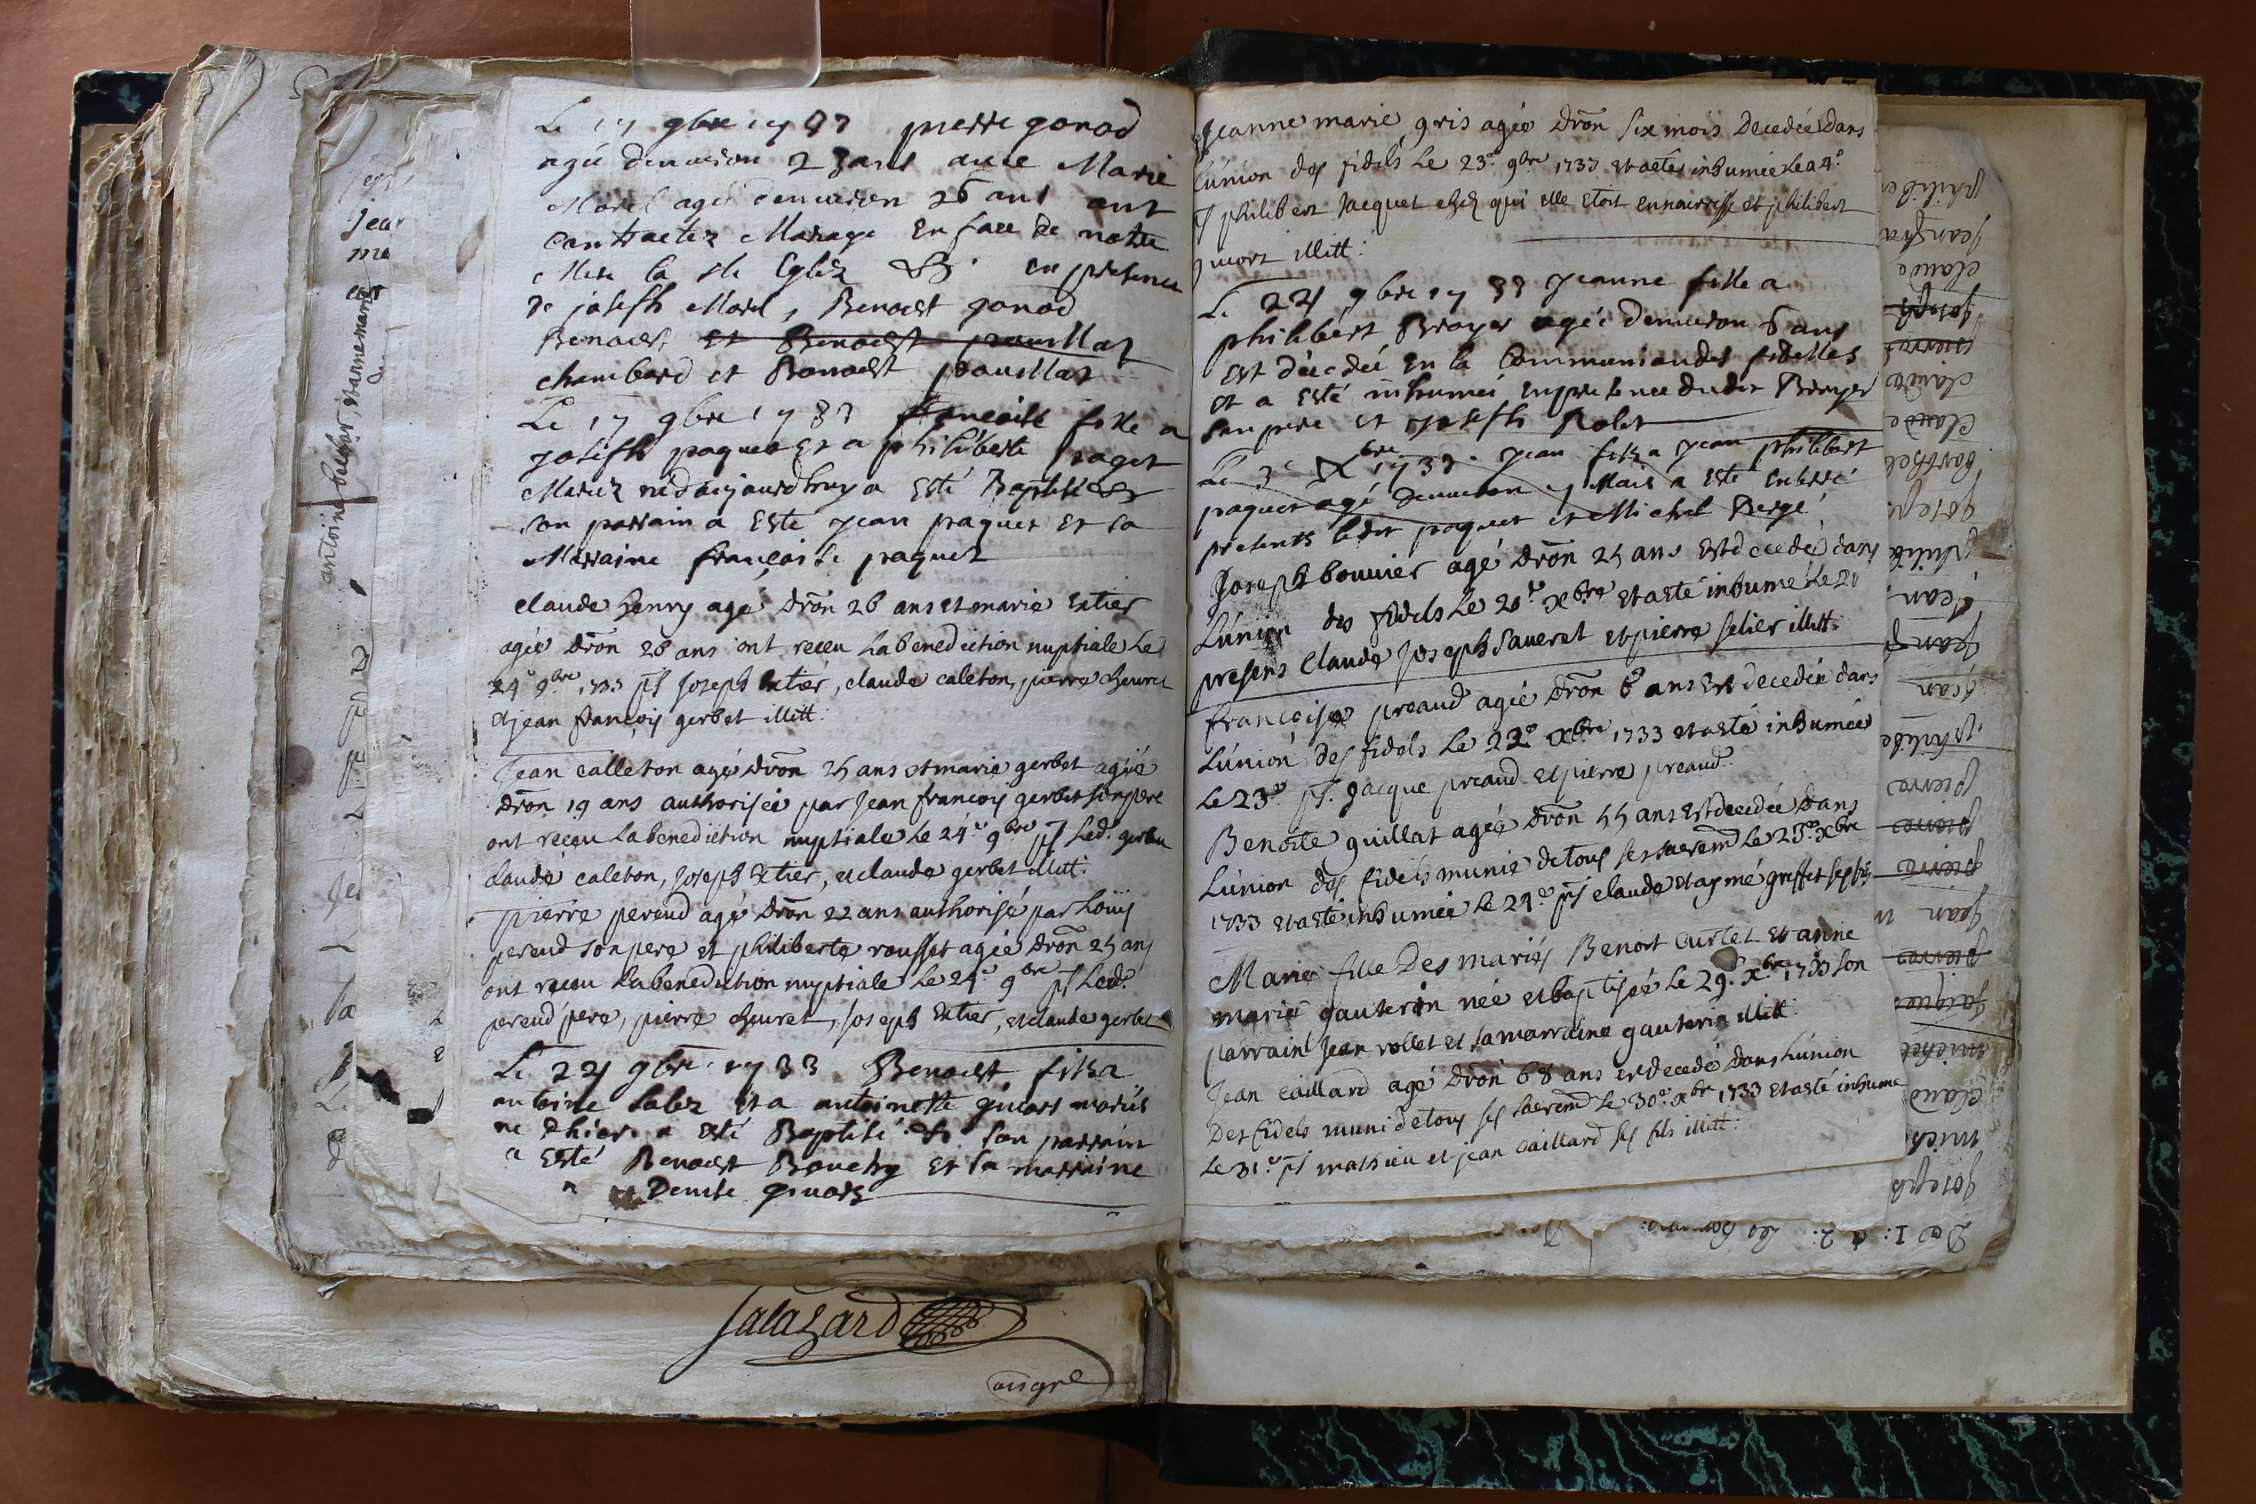 Le 17 9bre 1733 pierre gonod
agé denuiron 23 ans auec Marie
Morel agé denuiron 26 ans ont
Contractez Mariage En face de notre
Mere la Ste Eglize &c. en presence
de joseph Morel, Benoist gonod
Benoist et Benoist pouillat
chambard et Benoist pouillat
Le 17 9bre 1733 francoise fille a
joseph paquet Et a philiberte raget
Mariez né daujourdhuy a Esté Baptisé &c
son parrain a Este jean paquet Et sa
Marraine francoise paquet
claude henry agé dron 26 ans et marie Extier
agée dron 28 ans ont receu La benediction nuptiale Le
24e 9bre 1733 pst joseph Extier, claude caleton, pierre cheuret
et jean françois gerbet illitt:
Jean calleton agé dron 25 ans et marie gerbet agée
dron 19 ans authorisée par Jean francois gerbet son pere
ont receu La benediction nuptiale le 24e 9bre pst Led. gerbet
claude caleton, joseph Extier, et claude gerbet illitt:
pierre perend agé dron 22 ans authorisé par Loüis
perend son pere et philiberte rousset agée dron 25 ans
ont receu La benediction nuptiale Le 24e 9bre pst Led.
perend pere, pierre cheuret, joseph Extier, et claude gerbet
Le 24 9bre 1733 Benoist fils a
antoine Et a antoinette mariés
né dhier a esté Baptisé &c. son parrain
a Esté Benoist Bouchy Et sa marraine
Denise
Jeanne marie gris agée dron six mois decedée dans
Lúnion des fidels Le 23e 9bre 1733 et a eté inhumée Le 24e
philibert Jacquet chez qui elle etoit en nourrisse et philibert
illitt:
Le 24 9bre 1733 jeanne fille a
philibert Broyer agée denuiron 6 ans
est décédée En la Communion des fidelles
et a Esté inhumée En presence dudit Broyer
son pere et joseph Rolet
Le 3e Xbre 1733 jean fils a jean philibert
paquet agé denuiron Mois a Esté Enterré
presents ledit paquet et Michel Bergé
Joseph bouuier agé dron 25 ans Est decedé dans
Lúnion des fidels Le 20e xbre et a eté inhumé Le 21
presens Claude joseph Sauerat et pierre selier illitt:
francoise preaud agée dron 6 ans Est decedée dans
Lúnion des fidels Le 22e xbre 1733 et a eté inhumée
Le 23e pst. Jacque preaud et pierre preaud
Benoite guillat agée dron 55 ans Est decedée dans
Lúnion des fidels munie de tous ses sacremd Le 23e xbre
1733 et a eté inhumée Le 24e pst claude et aymé greffet ses fils
Marie fille Des mariés Benoit Curtet et anne
marie gauterin née et baptisée Le 29e xbre 1733 son
parrain Jean rollet et sa marraine gauterin illitt:
Jean caillard agé dron 68 ans est decedé dans Lúnion
Des fidels muni de tous ses sacremd Le 30e xbre 1733 et a eté inhumé
Le 31e pst mathieu et jean caillard ses fils illitt:
Salazard
antoine et anne marie
jean
claude
joseph
pierre
claude
claude
joseph
jean
jean
jean
pierre
pierre
pierre
jean
pierre
jacques
michel
claud
joseph